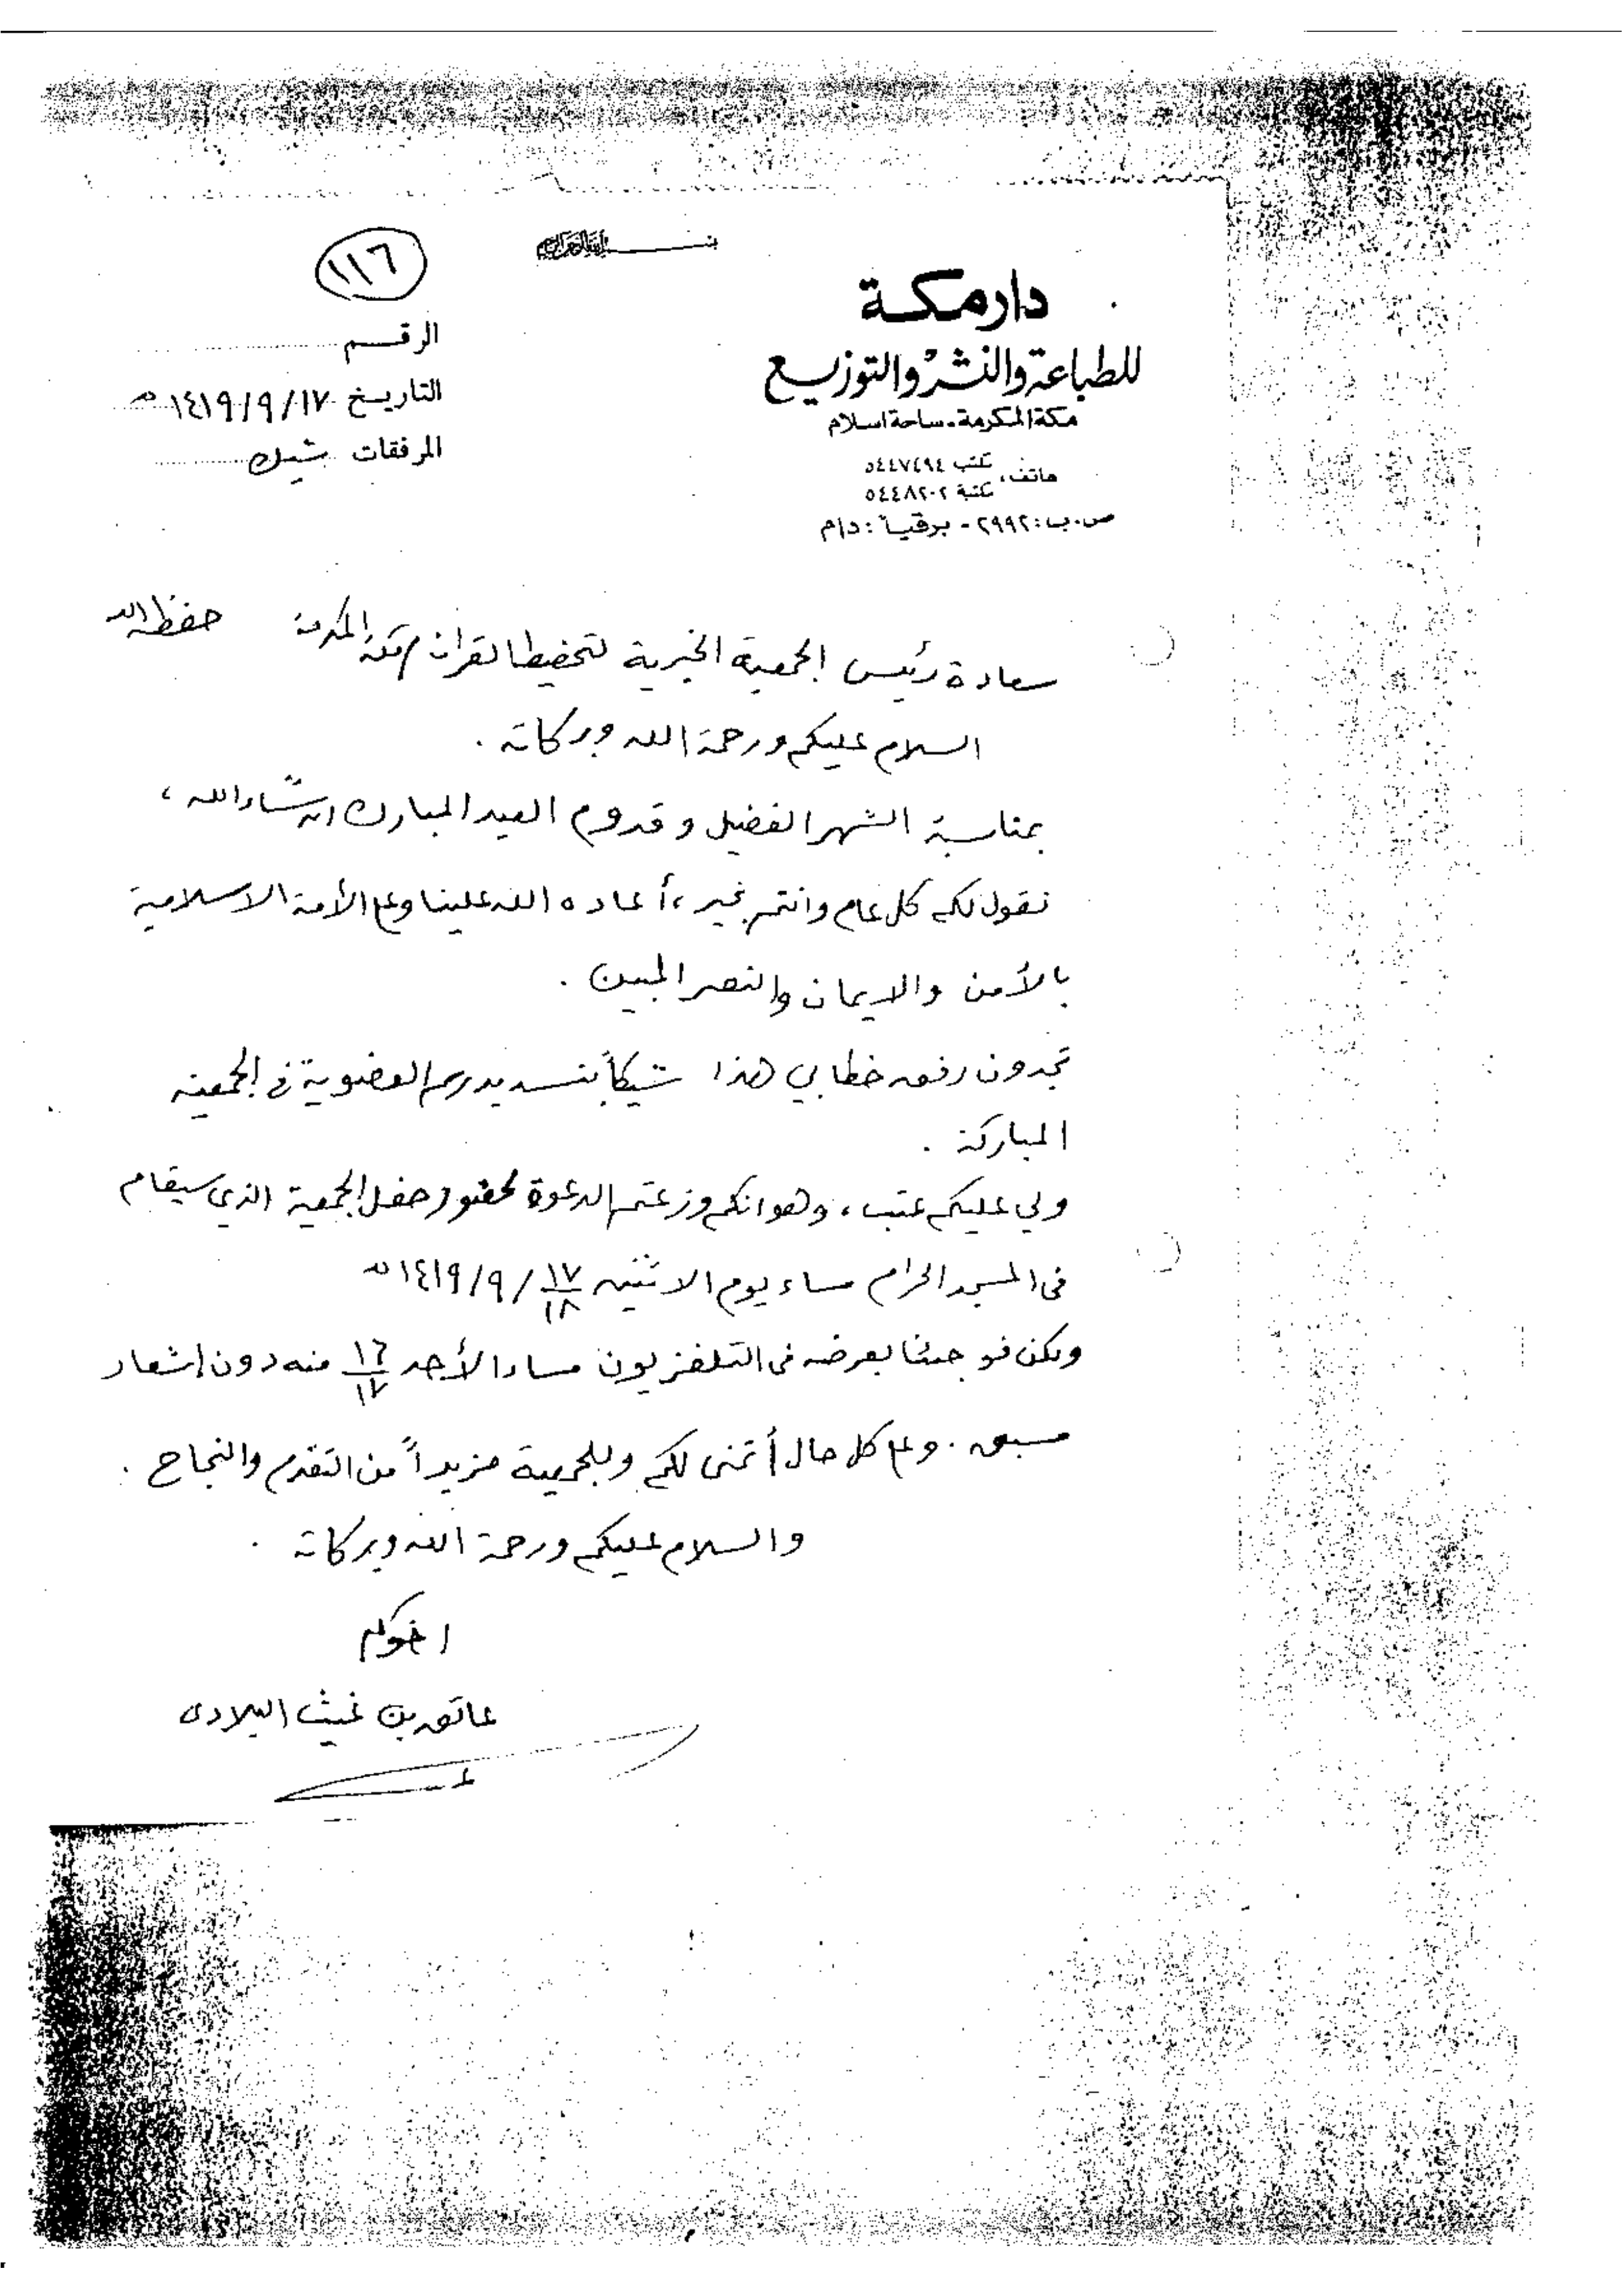 بسم الله الرحمن الرحيم
١١٦
دار مكة
للطباعة والنشر والتوزيع
مكة المكرمة - ساحة اسلام
هاتف: مكتب ٥٤٤٧٤٩٤
مكتبة ٥٤٤٨٢٠٢
ص.ب: ٢٩٩٢ - برقياً: دام
الرقم
التاريخ ١٤١٩/٩/١٧ هـ
المرفقات شيك
سعادة رئيس الجمعية الخيرية لتحفيظ القرآن بمكة المكرمة حفظه الله
السلام عليكم ورحمة الله وبركاته .
بمناسبة الشهر الفضيل وقدوم العيد المبارك ان شاء الله ،
نقول لكم كل عام وانتم بخير ، أعاده الله علينا وعلى الأمة الاسلامية
بالأمن والايمان والنصر المبين .
تجدون رفق خطابي هذا شيكاً بتسديد رسم العضوية في الجمعية
المباركة .
ولي عليكم عتب ، وهو انكم وزعتم الدعوة لحضور حفل الجمعية الذي سيقام
في المسجد الحرام مساء يوم الاثنين ١٧/١٨ /٩/١٤١٩ هـ
ولكن فوجئنا بعرضه في التلفزيون مساء الأحد ١٦/١٧ منه دون إشعار
مسبق . وعلى كل حال أتمنى لكم وللجمعية مزيداً من التقدم والنجاح .
والسلام عليكم ورحمة الله وبركاته .
اخوكم
عاتق بن غيث البلادي